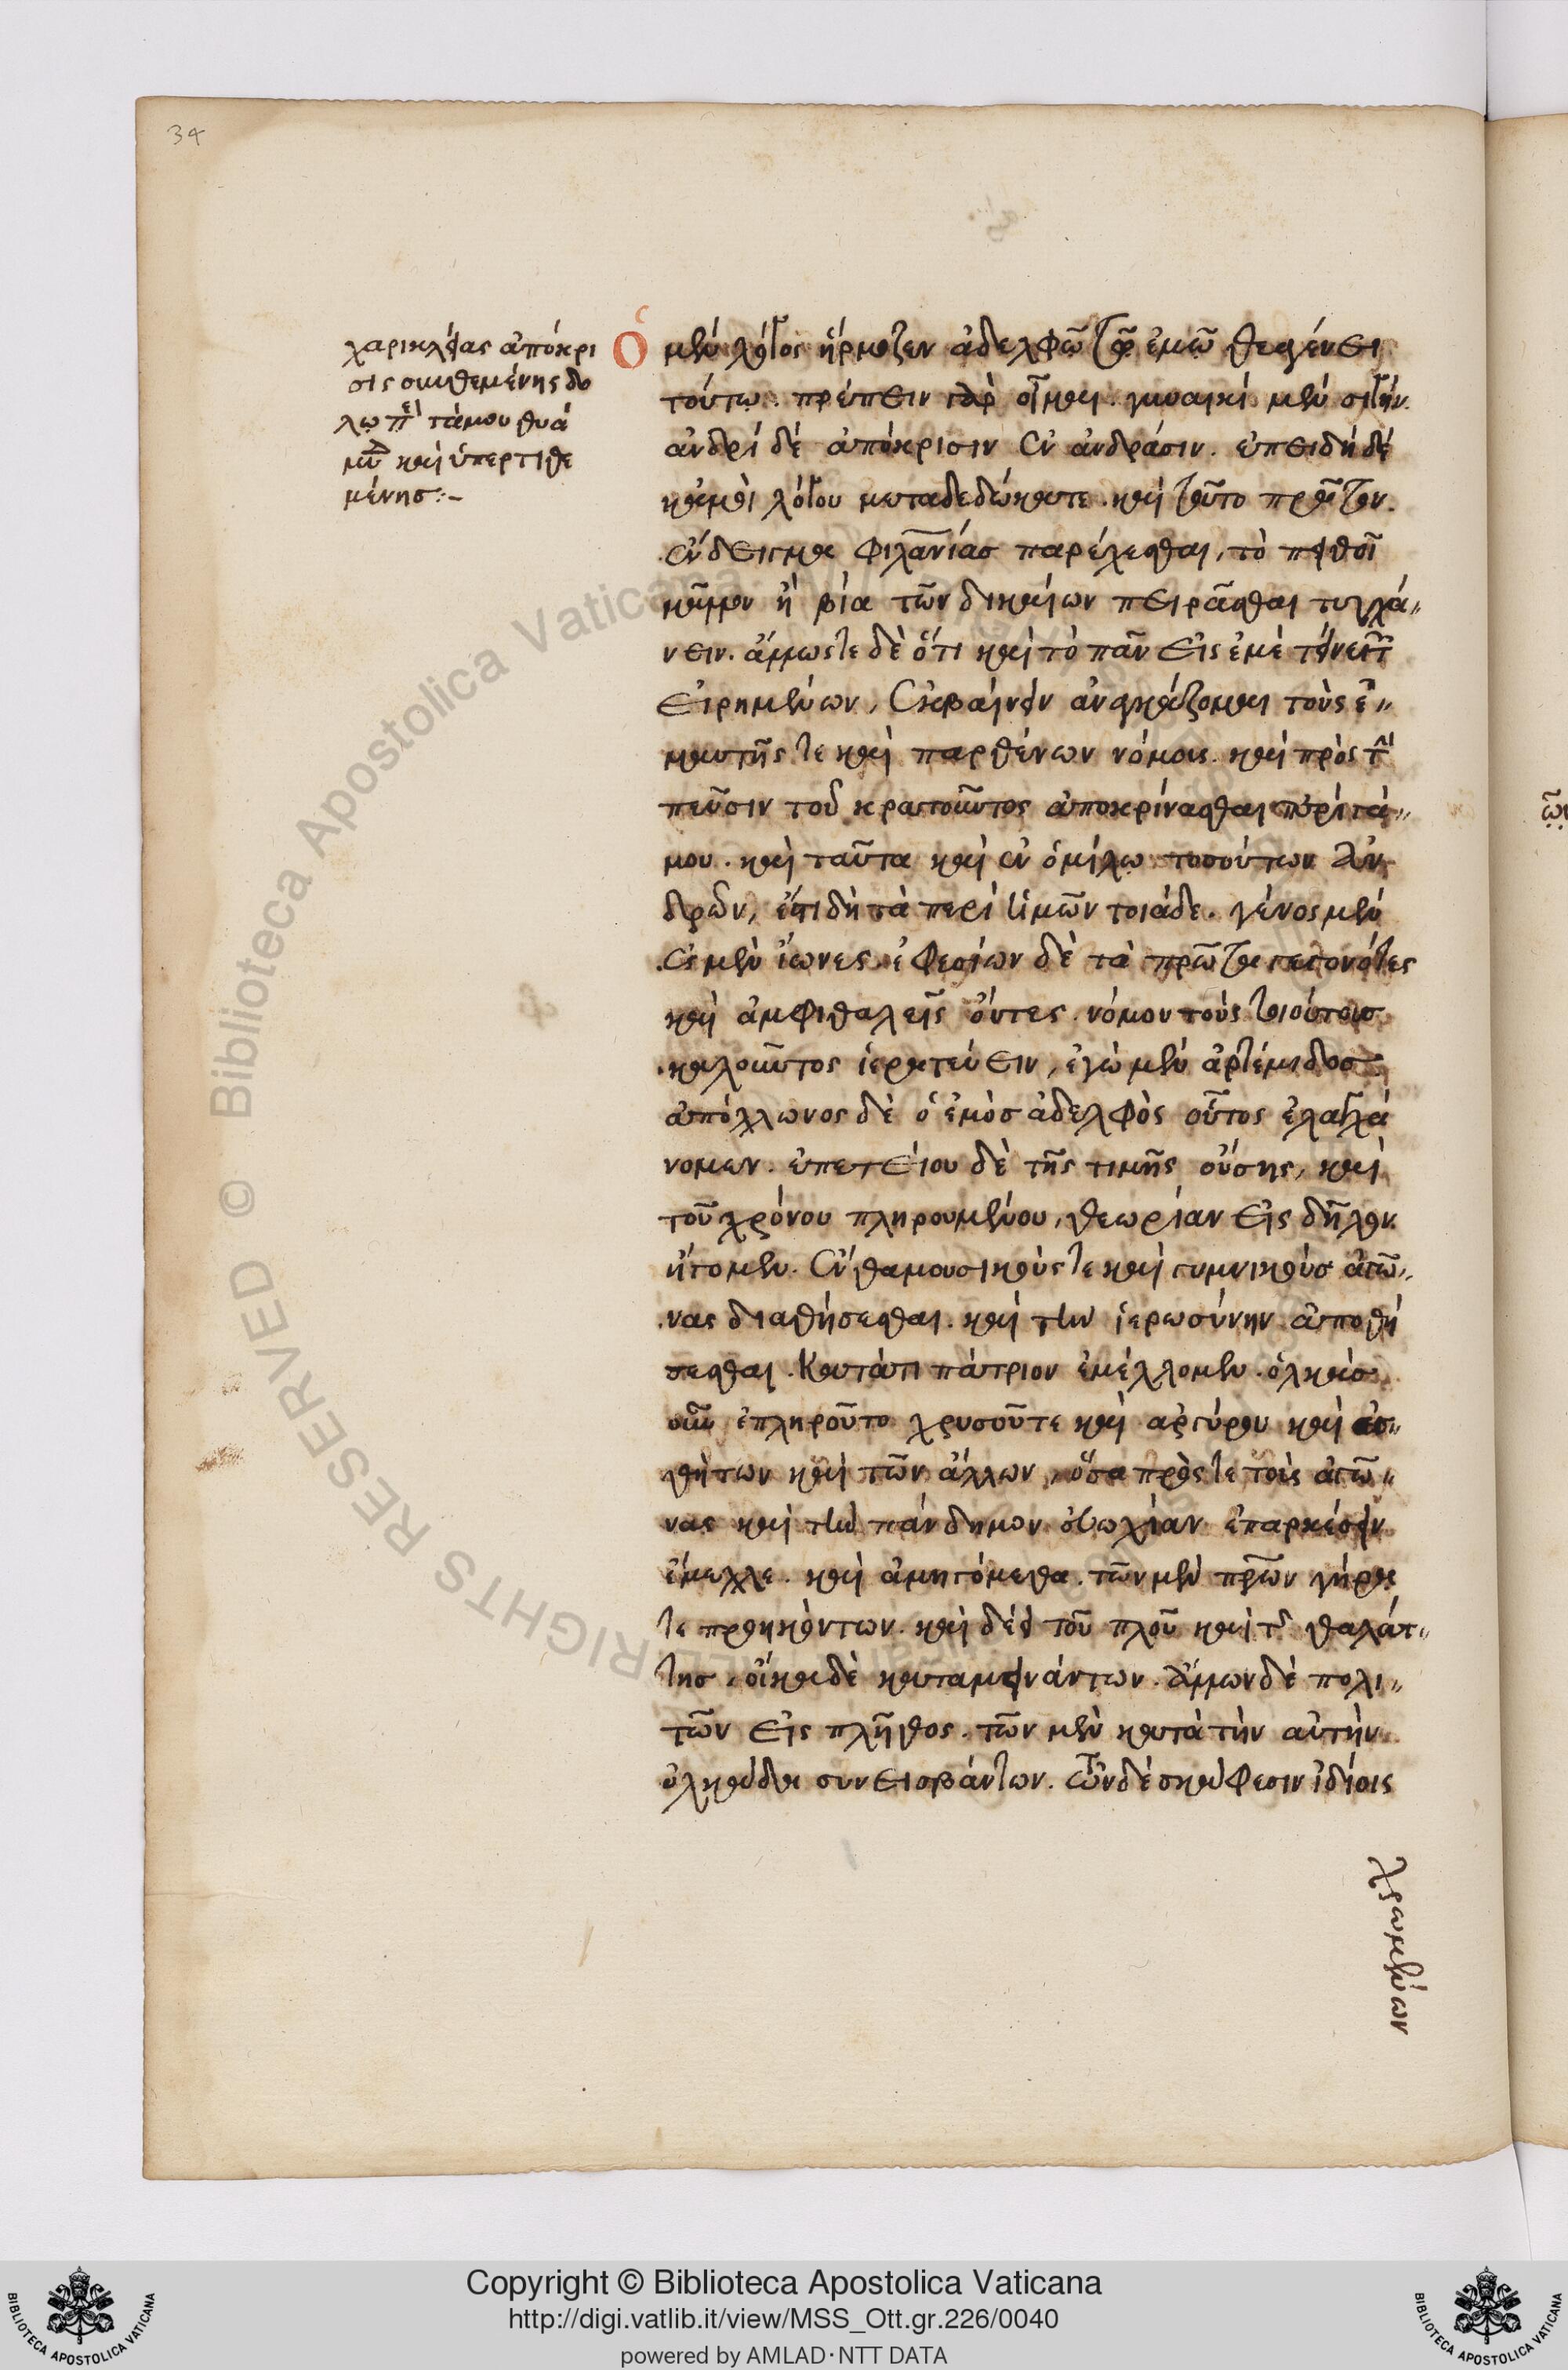 34
χαρικλείας ἀπόκρι
σις συνθεμένης δό
λῳ περὶ γάμου θυά
μιδι καὶ ὑπερτιθε
μένησ:-
Ὁ μὲν λόγος ἥρμοζεν ἀδελφῷ τῷ ἐμῷ θεαγένει
τούτῳ. πρέπειν γὰρ οἶμαι. γυναικὶ μὲν σιγήν.
ἀνδρὶ δὲ ἀπόκρισιν ἐν ἀνδράσιν. ἐπειδὴ δὲ
κἀμοὶ λόγου μεταδεδώκατε. καὶ τοῦτο πρῶτον.
ἔνδειγμα φιλανίασ παρέχεσθαι, τὸ πειθοῖ
μᾶλλον ἢ βία τῶν δικαίων πειρᾶσθαι τυγχά„
νειν. ἄλλως τε δὲ ὅτι καὶ τὸ πᾶν εἰς ἐμὲ τείνει τῶν
εἰρημένων, ἐκβαίνειν ἀναγκάζομαι τοὺς ἐ„
μαυτῆς τε καὶ παρθένων νόμους. καὶ πρὸς τὴν
πεῦσιν τοῦ κρατοῦντος ἀποκρίνασθαι περὶ γά„
μου. καὶ ταῦτα καὶ ἐν ὁμίλῳ τοσούτων ἀν
δρῶν, ἔτι δὴ τὰ περὶ ἡμῶν τοιάδε. γένος μὲν
ἐσμὲν ἴωνες. ἐφεσίων δὲ τὰ πρῶτα γεγονότες
καὶ ἀμφιθαλεῖς ὄντες. νόμου τοὺς τοιούτουσ
καλοῦντος ἱερατεύειν, ἐγὼ μὲν ἀρτέμιδοσ
ἀπόλλωνος δὲ ὁ ἐμὸσ ἀδελφὸς οὗτος ἐλαγχά
νομεν. ἐπετείου δὲ τῆς τιμῆς οὔσης, καὶ
τοῦ χρόνου πληρουμένου, θεωρίαν εἰς δῆλον
ἤγομεν. ἔνθα μουσικούς τε καὶ γυμνικούσ ἀγῶ„
νας διαθήσεσθαι. καὶ τὴν ἱερωσύνην ἀποθή
σεσθαι. κατά τι πάτριον ἐμέλλομεν. ὁλκάσ
οὖν ἐπληροῦτο χρυσοῦ τε καὶ ἀργύρου καὶ ἐσ„
θήτων καὶ τῶν ἄλλων, ὅσα πρός τε τοὺς ἀγῶ„
νας καὶ τὴν πάνδημον εὐωχίαν ἐπαρκέσειν
ἔμελλε. καὶ ἀνηγόμεθα. τῶν μὲν πρῶν γήρᾳ
τε προηκόντων. καὶ δέει τοῦ πλοῦ καὶ τῆς θαλάτ„
τησ, οἴκαδε καταμεινάντων. ἄλλων δὲ πολι„
τῶν εἰς πλῆθος. τῶν μὲν κατὰ τὴν αὐτὴν
ὁλκάδα συνεισβάντων. τῶν δὲ σκάφεσιν ἰδίοις
χρωμένων
ῶν
© Biblioteca Apostolica Vaticana
ALL RIGHTS RESERVED
Copyright © Biblioteca Apostolica Vaticana
http://digi.vatlib.it/view/MSS_Ott.gr.226/0040
powered by AMLAD·NTT DATA
BIBLIOTECA APOSTOLICA VATICANA
BIBLIOTECA APOSTOLICA VATICANA